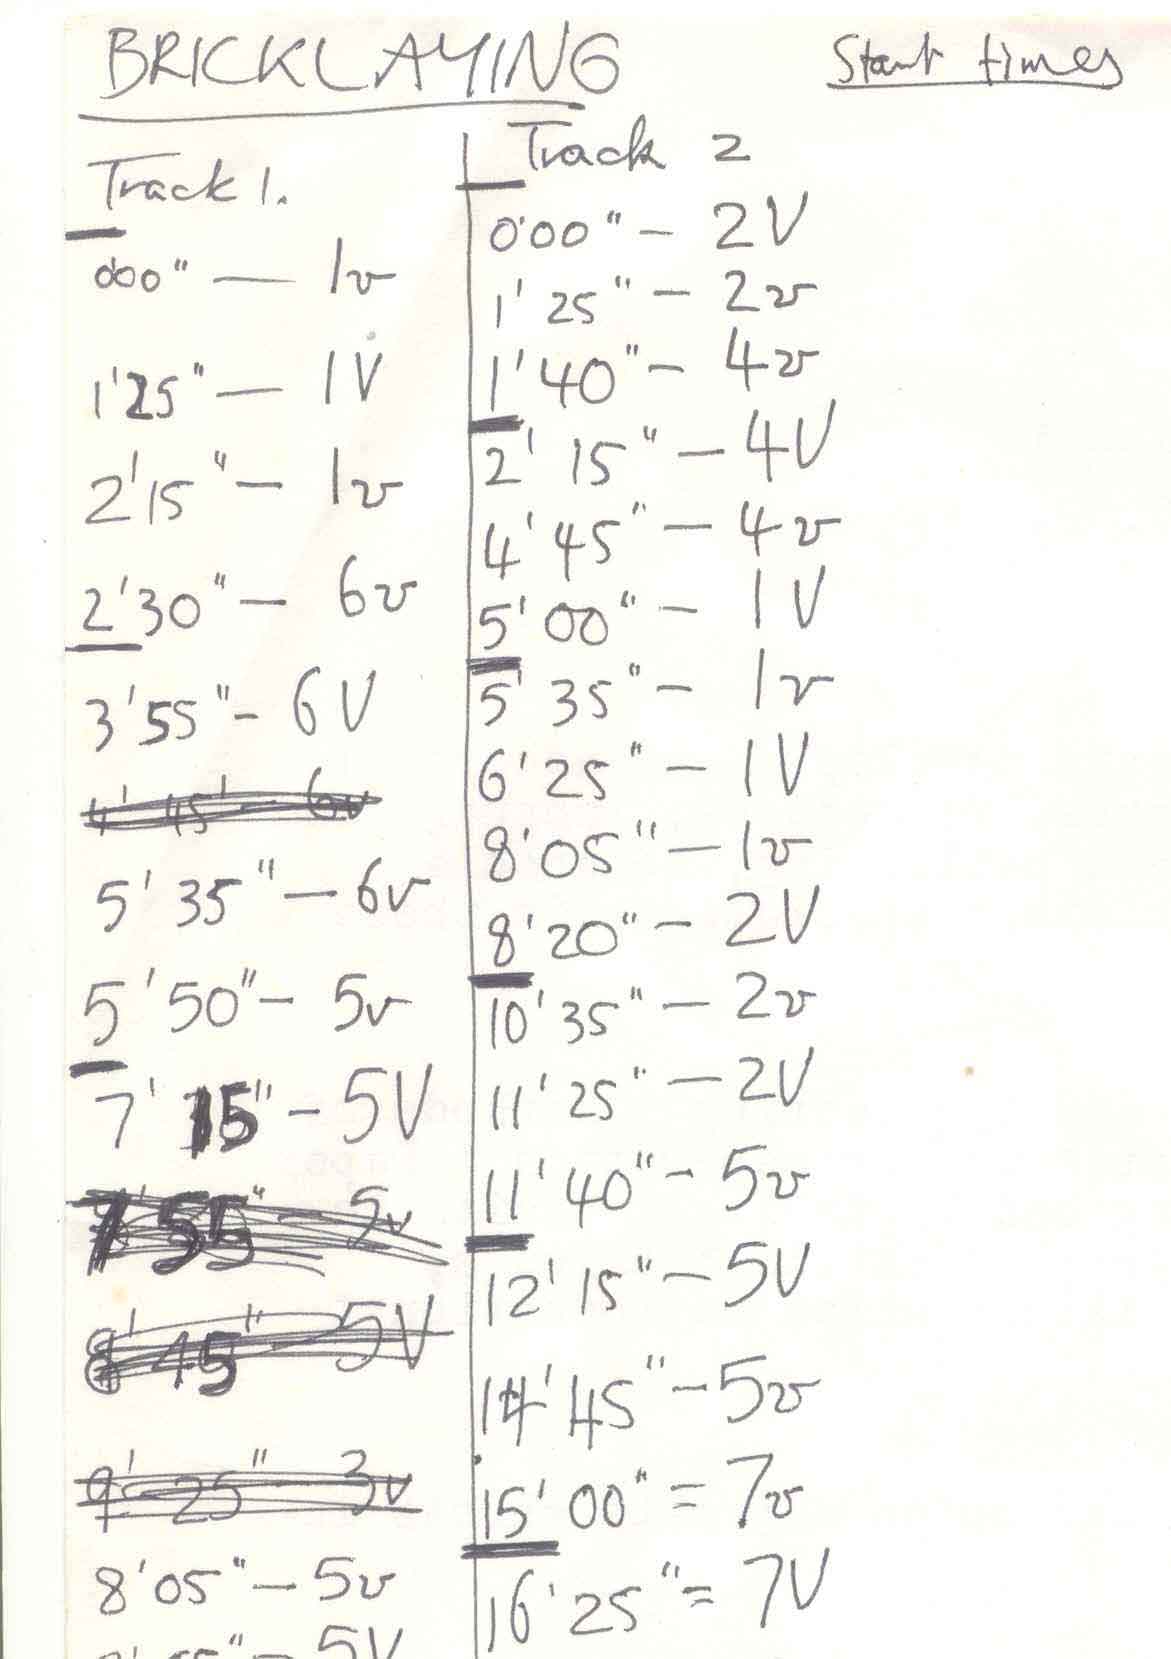 BRICKLAYING
Start times
Track 1.
0'00" — 1v
1'25" — 1V
2'15" — 1v
2'30" — 6v
3'55" - 6V
4' 45' - 6v
5' 35" — 6v
5' 50" - 5v
7' 15" - 5V
7' 55" - 5v
8' 45" 5V
9' 25" 3v
8' 05" - 5v
5V
Track 2
0'00" - 2V
1' 25" - 2v
1' 40" - 4v
2' 15" - 4V
4' 45" - 4v
5' 00" - 1V
5' 35" - 1v
6' 25" - 1V
8' 05" - 1v
8' 20" - 2V
10' 35" - 2v
11' 25" - 2V
11' 40" - 5v
12' 15" - 5V
14' 45" - 5v
15' 00" = 7v
16' 25" = 7V